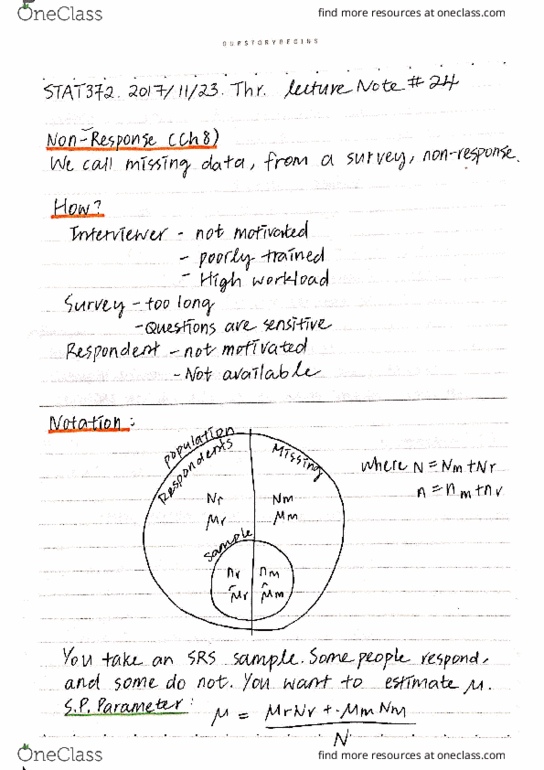 OneClass
find more resources at oneclass.com
OURSTORYBEGINS
STAT372. 2017/11/23. Thr. lecture Note # 24
Non-Response (Ch8)
We call missing data, from a survey, non-response.
How?
Interviewer - not motivated
- poorly trained
- High workload
Survey - too long
- Questions are sensitive
Respondent - not motivated
- Not available
Notation:
Population
Respondents
Missing
where N = Nm + Nr
n = nm + nr
Nr Nm
μr μm
Sample
nr nm
μ̂r μ̂m
You take an SRS sample. Some people respond,
and some do not. You want to estimate μ.
S.P. Parameter:
μ = μrNr + μmNm
N
OneClass
find more resources at oneclass.com